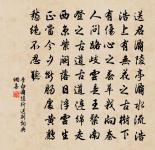 送君灞陵亭灞水流浩
浩上有無花之古樹下
有傷心之春草我向秦
人問路岐云是王粲南
登之古道古道連綿走
西京紫闕落日浮雲生
正當今夕斷腸處黃鸝
愁絕不忍聽
李白灞陵行送別詞典